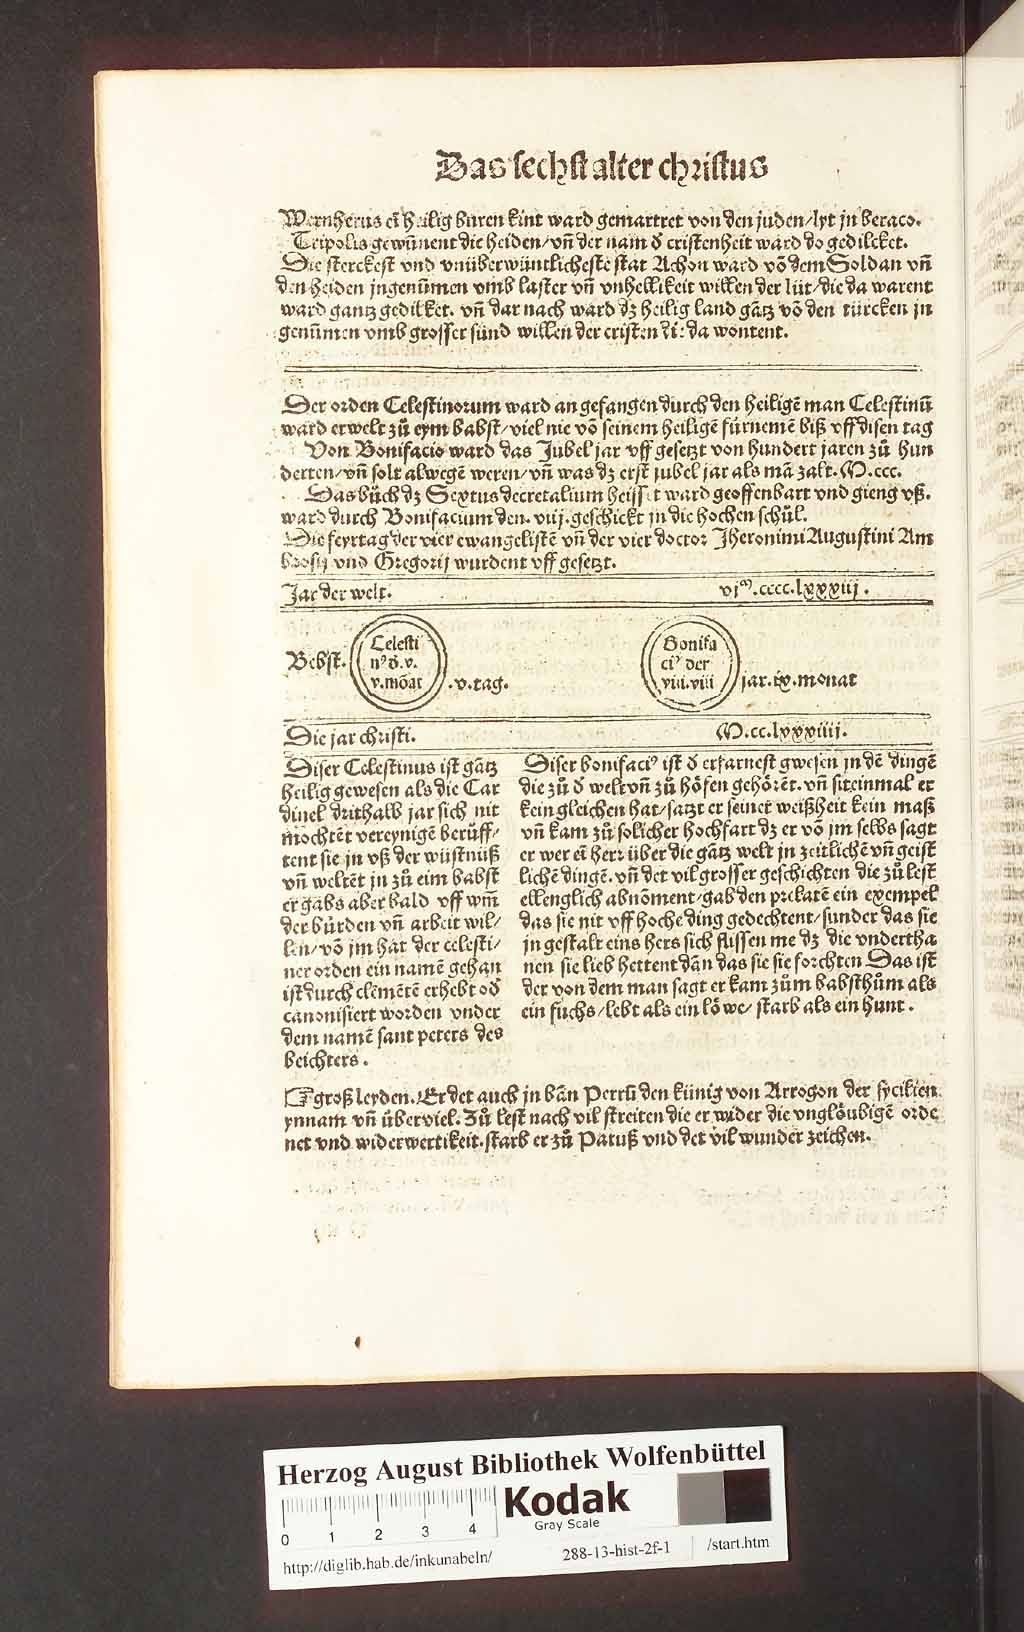 Das sechst alter christus
Wernherus eī heilig buren kint ward gemartret von den juden/lyt jn beraco.
Tripolis gewūnent die heiden/vn̄ der nam d̕ cristenheit ward do gedilcket.
Die sterckest vnd vnüberwüntlicheste stat Achon ward vō dem Soldan vn̄
den heiden jngenūmen vmb laster vn̄ vnhellikeit willen der lüt/die da warent
ward gantz gedilket. vn̄ dar nach ward dz heilig land gātz vō den türcken jn
genūmen vmb grosser sünd willen der cristen die da wontent.
Der orden Celestinorum ward an gefangen durch den heiligē man Celestinū
ward erwelt zů eym babst/viel nie vō seinem heiligē fürnemē biß vff disen tag
Von Bonifacio ward das Jubel jar vff gesetzt von hundert jaren zů hun
derten/vn̄ solt alwegē weren/vn̄ was dz erst jubel jar als mā zalt. M.ccc.
Das bůch dz Sextus decretalium heisset ward geoffenbart vnd gieng vß.
ward durch Bonifacium den. viij. geschickt jn die hochen schůl.
Die feyrtag der vier ewangelistē vn̄ der vier doctor Jheronimi Augustini Am
brosij vnd Gregorij wurdent vff gesetzt.
Jar der welt. vjᵐ.cccc.lxxxiij.
Bebst. Celesti
nꝰ d̕.v.
v.mōat .v.tag.
Bonifa
ciꝰ der
viii.viii jar.ix.monat
Die jar christi. M.cc.lxxxiiij.
Diser Celestinus ist gātz
heilig gewesen als die Car
dinel drithalb jar sich nit
mochtēt vereynigē berüff/
tent sie jn vß der wüstnüß
vn̄ weltēt jn zů eim babst
er gabs aber bald vff vm̄
der bürden vn̄ arbeit wil/
len/vō jm hat der celesti/
ner orden ein namē gehan
ist durch clemētē erhebt od̕
canonisiert worden vnder
dem namē sant peters des
beichters.
Diser bonifaciꝰ ist d̕ erfarnest gwesen jn dē dingē
die zů d̕ welt vn̄ zů höfen gehörēt. vn̄ sit einmal er
kein gleichen hat/satzt er seiner weißheit kein maß
vn̄ kam zů solicher hochfart dz er vō jm selbs sagt
er wer eī herr über die gātz welt jn zeitlichē vn̄ geist
lichē dingē. vn̄ det vil grosser geschichten die zů lest
ellenglich abnōment/gab den prelatē ein exempel
das sie nit vff hoche ding gedechtent/sunder das sie
jn gestalt eins hers sich flissen me dz die vndertha
nen sie lieb hettent dān das sie sie forchten Das ist
der von dem man sagt er kam zům babsthům als
ein fuchs/lebt als ein löwe/starb als ein hunt.
☞ groß leyden. Er det auch jn bān Petrū den künig von Arrogon der sycilien
ynnam vn̄ überviel. Zů lest nach vil streiten die er wider die vnglöubigē orde
net vnd widerwertikeit. starb er zů Paruß vnd det vil wunder zeichen.
Herzog August Bibliothek Wolfenbüttel
0 1 2 3 4
Kodak
Gray Scale
http://diglib.hab.de/inkunabeln/ 288-13-hist-2f-1 /start.htm